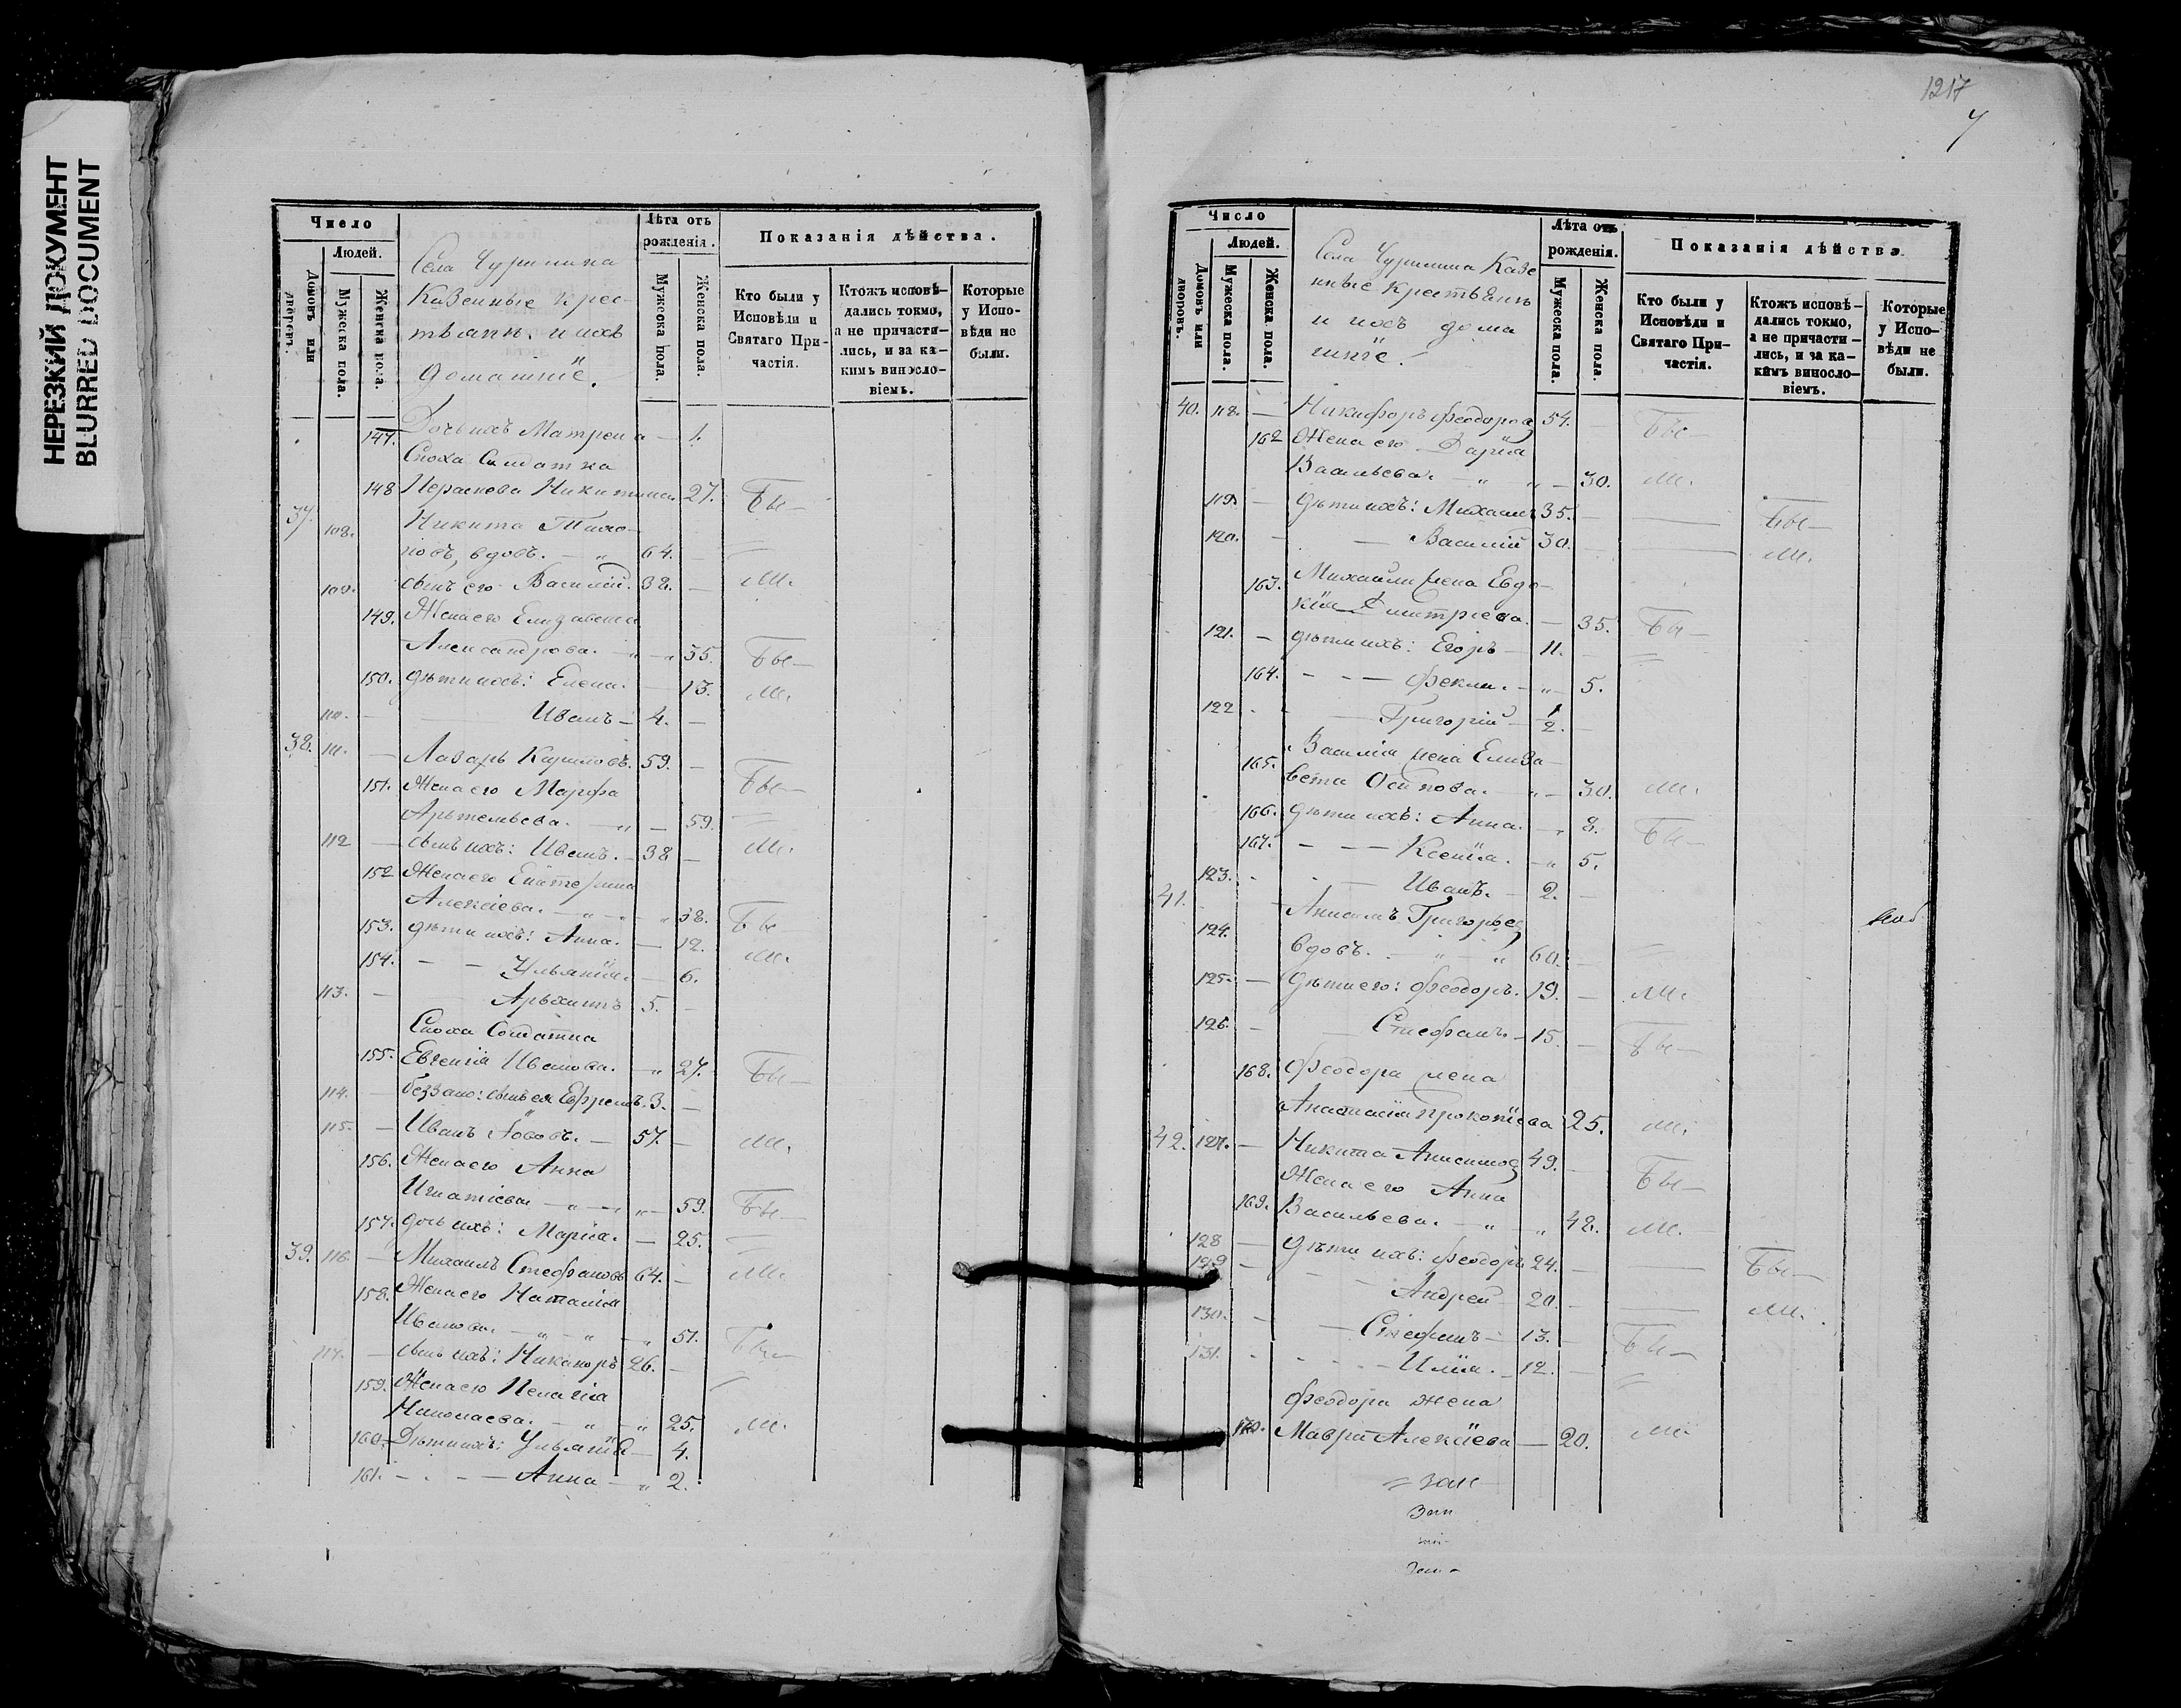 НЕРЕЗКИЙ ДОКУМЕНТ
BLURRED DOCUMENT
Число
Людей.
Домовъ или дворовъ.
Мужеска пола.
Женска пола.
Села Чуринина
Казенные Крес-
тьяни. и ихъ
домашніе.
Лѣта отъ рожденія.
Мужеска пола.
Женска пола.
Показанія дѣйства.
Кто были у Исповѣди и Святаго При-
частія.
Ктожъ исповѣ-
дались токмо, а не причасти-
лись, и за ка-
кимъ виносло-
віемъ.
Которые у Испо-
вѣди не были.
147. Дочь ихъ Матрена — 1.
Сноха Солдатка
148 Параскова Никитина 27. Бы—
37. 108. Никита
вдовъ. — " 64. —
109. сынъ его Василій. 38. — ли.
149. Жена его Елизавета
Александрова. — " — " 35. Бы—
150. дѣти ихъ: Елена. — 13. ли.
110. — Иванъ — 4. —
38. 111. — Лазарь Кириловъ. 59. —
151. Жена его Марфа Бы—
Артемьева. — " — 59.
112 — сынъ ихъ: Иванъ. — 38 — ли.
152 Жена его Екатерина
Алексіева. — " — " 38. Бы
153. дѣти ихъ: Анна. — 12. ли.
154. — — Ульянія. — 6.
113. — Архипъ 5. —
Сноха Солдатка
155. Евгенія Иванова. — " 27. Бы—
114. — беззако: сынъ ея Ефремъ. 3. —
115. — Иванъ Іововъ. — 57. — ли.
156. Жена его Анна
Игнатіева — " — " — 59. Бы—
157. дочь ихъ: Марія. — 25.
39. 116. — Михаилъ Стефановъ 64. — ли.
158. Жена его Наталія
Иванова. — " — " — " 51. Бы—
117. — сынъ ихъ: Никаноръ 26. —
159. Жена его Пелагія
Николаева. — " — " 25. ли.
160. Дѣти ихъ: Ульянія — 4.
161. — . — — Анна — " 2.
1217
7
Число
Людей.
Домовъ или дворовъ.
Мужеска пола.
Женска пола.
Села Чуринина Казе
нные Крестьянъ
и ихъ дома
шніе.
Лѣта отъ рожденія.
Мужеска пола.
Женска пола.
Показанія дѣйства.
Кто были у Исповѣди и Святаго При-
частія.
Ктожъ исповѣ-
дались токмо, а не причасти-
лись, и за ка-
кимъ виносло-
віемъ.
Которые у Испо-
вѣди не были.
40. 118. — Никифоръ Феодоров 54. — Бы—
162 Жена его Дарія
Васильева. — " " — 30. ли.
119. — дѣти ихъ: Михаилъ 35. — — Бы—
120. — — Василій 30. — — ли.
163. Михаила жена Евдо-
кія Дмитріева. — 35. Бы—
121. — дѣти ихъ: Егоръ — 11. —
164. — — — Фекла. — " — 5.
122 — Григорій — 1/2. —
Василія жена Елиза
165. вета Осипова. — " — 30. ли.
166. дѣти ихъ: Анна. — " 8. Бы—
167. — — — Ксенія. — " 5.
123. — Иванъ. — 2. —
41. Анисимъ Григорьев
124. вдовъ. — " — " 60. —
125. — дѣти его: Феодоръ. 19. — ли.
126. — — Стефанъ. — 15. — Бы—
168. Феодора жена
Анастасія Прокопіева 25. ли.
42. 127. — Никита Анисимов 49. — Бы—
Жена его Анна
169. Васильева. — " — " 48. ли.
128 — дѣти ихъ: Феодоръ 24. — — Бы—
129 — — — Андрей — 20. — — ли.
130. — — Стефанъ — 13. — Бы—
131. — — — Илія. — 12. —
Феодора жена
170. Мавра Алексіева — 20. ли.